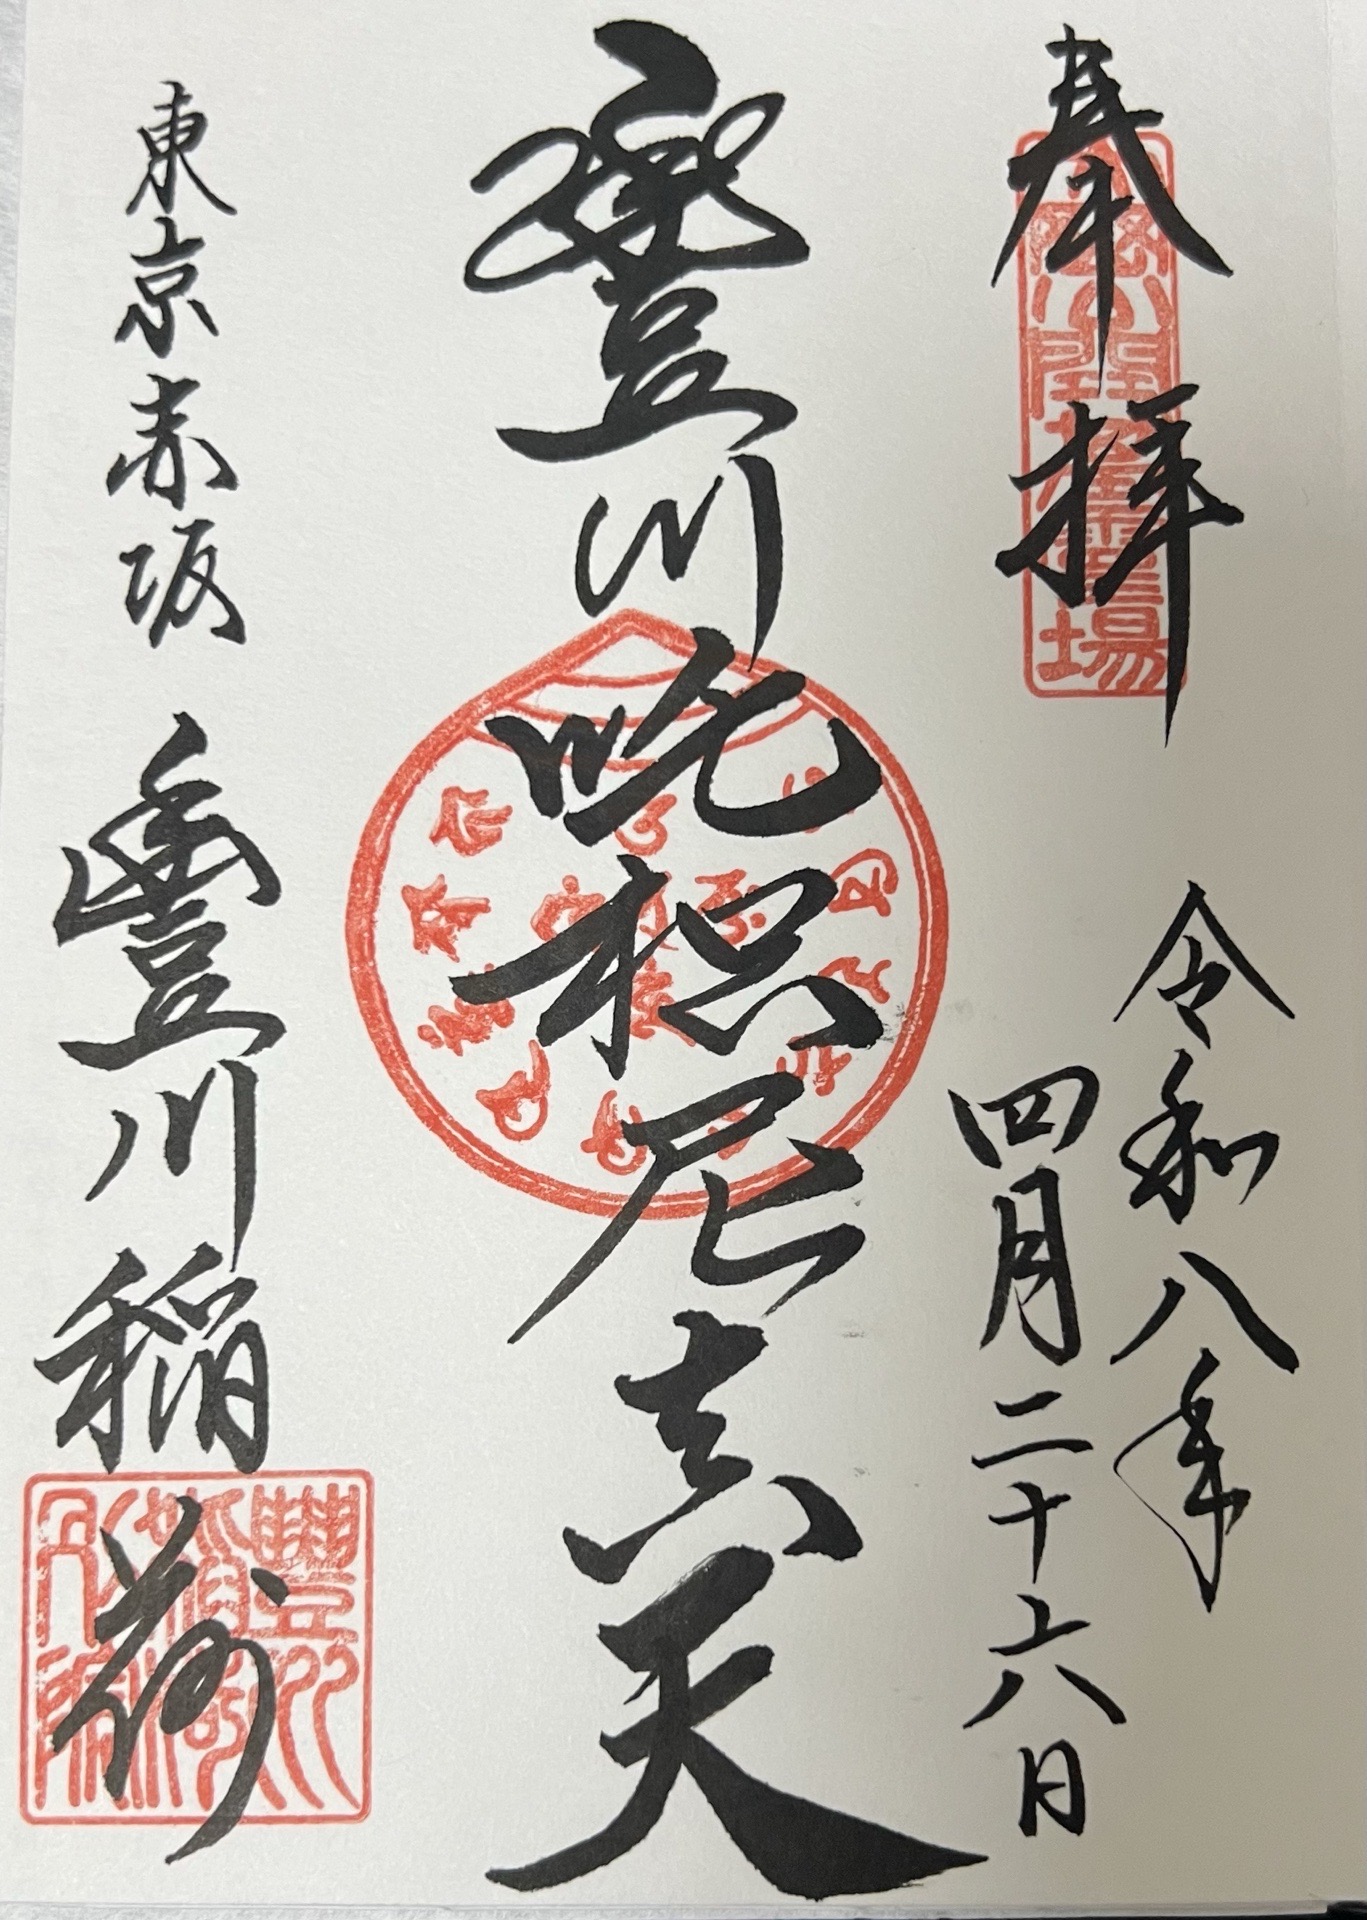 奉拝
令和八年
四月二十六日
豊川吒枳尼真天
東京赤坂
豊川稲荷